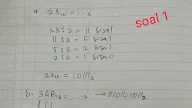 soal 1
a. 23₁₀ = ....₂
23 : 2 = 11 sisa 1
11 : 2 = 5 sisa 1
5 : 2 = 2 sisa 1
2 : 2 = 1 sisa 0
23₁₀ = 10111₂
b. 3AB₁₆ = ....₂